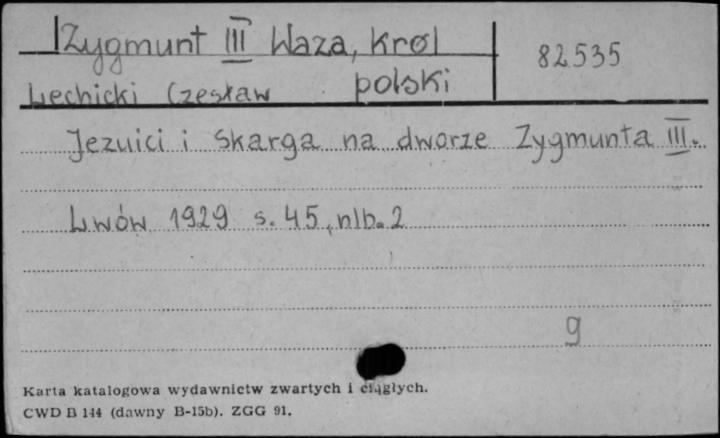 Zygmunt III Waza, Król
82535
Lechicki Czesław polski
Jezuici i Skarga na dworze Zygmunta III.
Lwów 1929 s. 45, nlb. 2
9
Karta katalogowa wydawnictw zwartych i ciągłych.
CWD B 144 (dawny B-15b). ZGG 91.